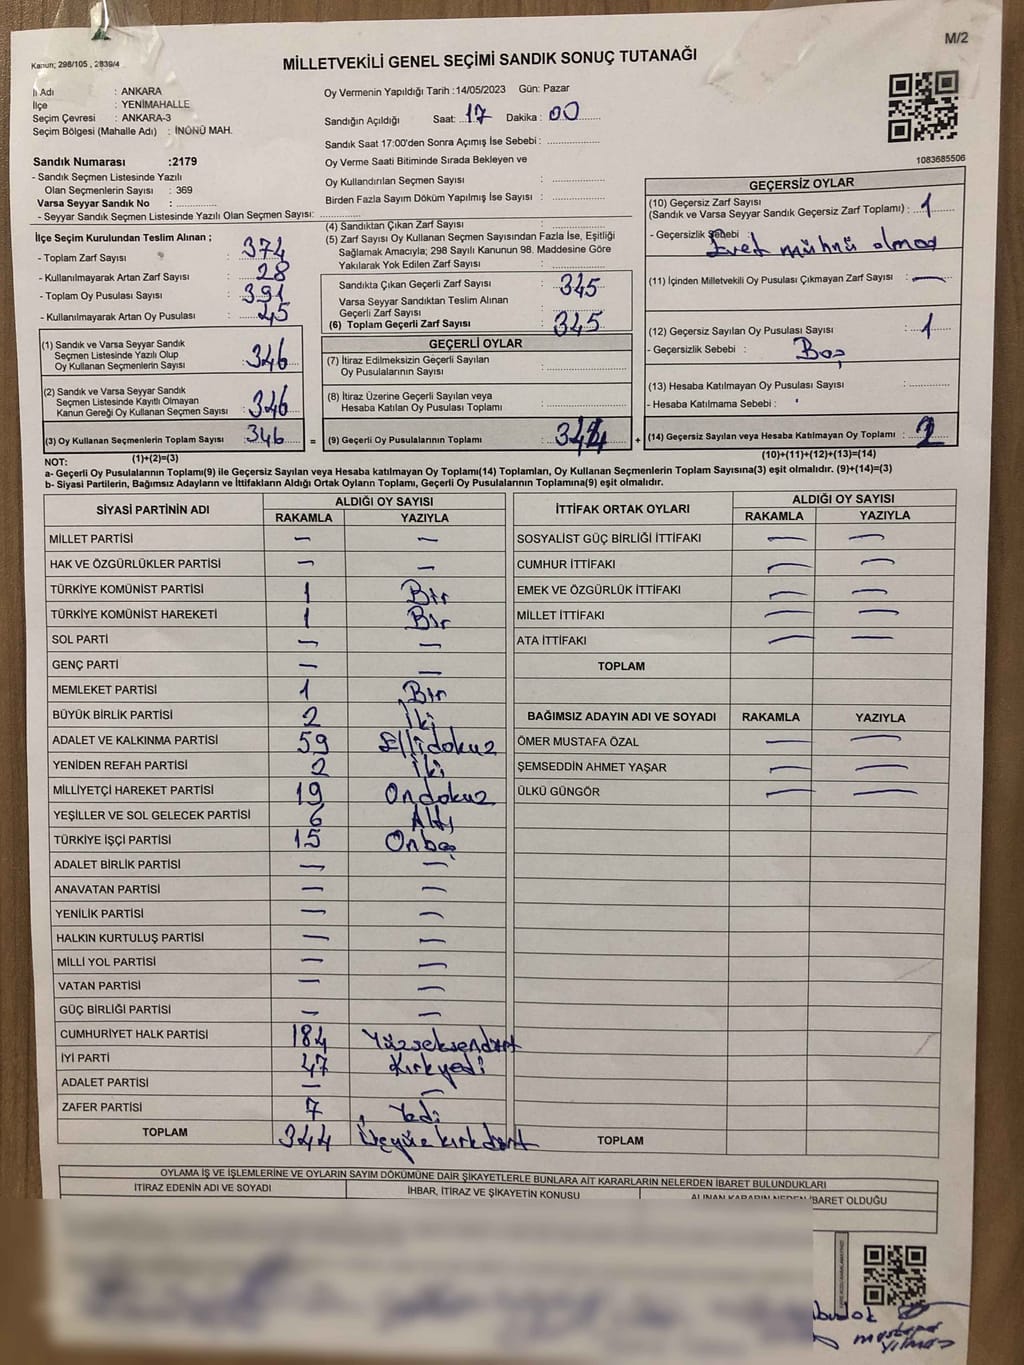 M/2
Kanun; 298/105 , 2839/4
MİLLETVEKİLİ GENEL SEÇİMİ SANDIK SONUÇ TUTANAĞI
İl Adı : ANKARA
İlçe : YENİMAHALLE
Seçim Çevresi : ANKARA-3
Seçim Bölgesi (Mahalle Adı) : İNÖNÜ MAH.
Sandık Numarası :2179
- Sandık Seçmen Listesinde Yazılı
Olan Seçmenlerin Sayısı : 369
Varsa Seyyar Sandık No :
- Seyyar Sandık Seçmen Listesinde Yazılı Olan Seçmen Sayısı:
Oy Vermenin Yapıldığı Tarih :14/05/2023 Gün: Pazar
Sandığın Açıldığı Saat: 17 Dakika : 00
Sandık Saat 17:00'den Sonra Açımış İse Sebebi :
Oy Verme Saati Bitiminde Sırada Bekleyen ve
Oy Kullandırılan Seçmen Sayısı :
Birden Fazla Sayım Döküm Yapılmış İse Sayısı :
1083685506
İlçe Seçim Kurulundan Teslim Alınan ;
- Toplam Zarf Sayısı : 374
- Kullanılmayarak Artan Zarf Sayısı : 28
- Toplam Oy Pusulası Sayısı : 391
- Kullanılmayarak Artan Oy Pusulası : 45
(1) Sandık ve Varsa Seyyar Sandık
Seçmen Listesinde Yazılı Olup
Oy Kullanan Seçmenlerin Sayısı : 346
(2) Sandık ve Varsa Seyyar Sandık
Seçmen Listesinde Kayıtlı Olmayan
Kanun Gereği Oy Kullanan Seçmen Sayısı : 346
(3) Oy Kullanan Seçmenlerin Toplam Sayısı : 346
(1)+(2)=(3)
(4) Sandıktan Çıkan Zarf Sayısı :
(5) Zarf Sayısı Oy Kullanan Seçmen Sayısından Fazla İse, Eşitliği
Sağlamak Amacıyla; 298 Sayılı Kanunun 98. Maddesine Göre
Yakılarak Yok Edilen Zarf Sayısı :
Sandıkta Çıkan Geçerli Zarf Sayısı : 345
Varsa Seyyar Sandıktan Teslim Alınan
Geçerli Zarf Sayısı :
(6) Toplam Geçerli Zarf Sayısı : 345
GEÇERLİ OYLAR
(7) İtiraz Edilmeksizin Geçerli Sayılan
Oy Pusulalarının Sayısı :
(8) İtiraz Üzerine Geçerli Sayılan veya
Hesaba Katılan Oy Pusulası Toplamı :
= (9) Geçerli Oy Pusulalarının Toplamı : 344 +
GEÇERSİZ OYLAR
(10) Geçersiz Zarf Sayısı
(Sandık ve Varsa Seyyar Sandık Geçersiz Zarf Toplamı) : 1
- Geçersizlik Sebebi
Evet mühnü olmad
(11) İçinden Milletvekili Oy Pusulası Çıkmayan Zarf Sayısı : —
(12) Geçersiz Sayılan Oy Pusulası Sayısı : 1
- Geçersizlik Sebebi : Boş
(13) Hesaba Katılmayan Oy Pusulası Sayısı :
- Hesaba Katılmama Sebebi :
(14) Geçersiz Sayılan veya Hesaba Katılmayan Oy Toplamı : 2
(10)+(11)+(12)+(13)=(14)
NOT:
a- Geçerli Oy Pusulalarının Toplamı(9) ile Geçersiz Sayılan veya Hesaba katılmayan Oy Toplamı(14) Toplamları, Oy Kullanan Seçmenlerin Toplam Sayısına(3) eşit olmalıdır. (9)+(14)=(3)
b- Siyasi Partilerin, Bağımsız Adayların ve İttifakların Aldığı Ortak Oyların Toplamı, Geçerli Oy Pusulalarının Toplamına(9) eşit olmalıdır.
SİYASİ PARTİNİN ADI ALDIĞI OY SAYISI
RAKAMLA YAZIYLA
MİLLET PARTİSİ — —
HAK VE ÖZGÜRLÜKLER PARTİSİ — —
TÜRKİYE KOMÜNİST PARTİSİ 1 Bir
TÜRKİYE KOMÜNİST HAREKETİ 1 Bir
SOL PARTİ — —
GENÇ PARTİ — —
MEMLEKET PARTİSİ 1 Bir
BÜYÜK BİRLİK PARTİSİ 2 İki
ADALET VE KALKINMA PARTİSİ 59 Ellidokuz
YENİDEN REFAH PARTİSİ 2 İki
MİLLİYETÇİ HAREKET PARTİSİ 19 Ondokuz
YEŞİLLER VE SOL GELECEK PARTİSİ 6 Altı
TÜRKİYE İŞÇİ PARTİSİ 15 Onbeş
ADALET BİRLİK PARTİSİ — —
ANAVATAN PARTİSİ — —
YENİLİK PARTİSİ — —
HALKIN KURTULUŞ PARTİSİ — —
MİLLİ YOL PARTİSİ — —
VATAN PARTİSİ — —
GÜÇ BİRLİĞİ PARTİSİ — —
CUMHURİYET HALK PARTİSİ 184 Yüzseksendört
İYİ PARTİ 47 Kırkyedi
ADALET PARTİSİ — —
ZAFER PARTİSİ 7 Yedi
TOPLAM 344 Üçyüzkırkdört
İTTİFAK ORTAK OYLARI ALDIĞI OY SAYISI
RAKAMLA YAZIYLA
SOSYALİST GÜÇ BİRLİĞİ İTTİFAKI — —
CUMHUR İTTİFAKI — —
EMEK VE ÖZGÜRLÜK İTTİFAKI — —
MİLLET İTTİFAKI — —
ATA İTTİFAKI — —
TOPLAM
BAĞIMSIZ ADAYIN ADI VE SOYADI RAKAMLA YAZIYLA
ÖMER MUSTAFA ÖZAL — —
ŞEMSEDDİN AHMET YAŞAR — —
ÜLKÜ GÜNGÖR — —
TOPLAM
OYLAMA İŞ VE İŞLEMLERİNE VE OYLARIN SAYIM DÖKÜMÜNE DAİR ŞİKAYETLERLE BUNLARA AİT KARARLARIN NELERDEN İBARET BULUNDUKLARI
İTİRAZ EDENİN ADI VE SOYADI İHBAR, İTİRAZ VE ŞİKAYETİN KONUSU ALINAN KARARIN NEDEN İBARET OLDUĞU
mustafa
YILMAZ